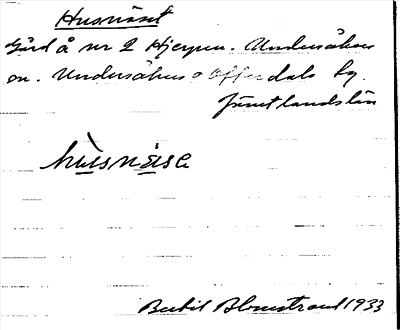 Husnäset
Gård å nr 2 Hjerpen. Undersåkers
sn. Undersåkers o Offerdals tg.
Jämtlands län
hùsnäse
Bertil Blomstrand 1933